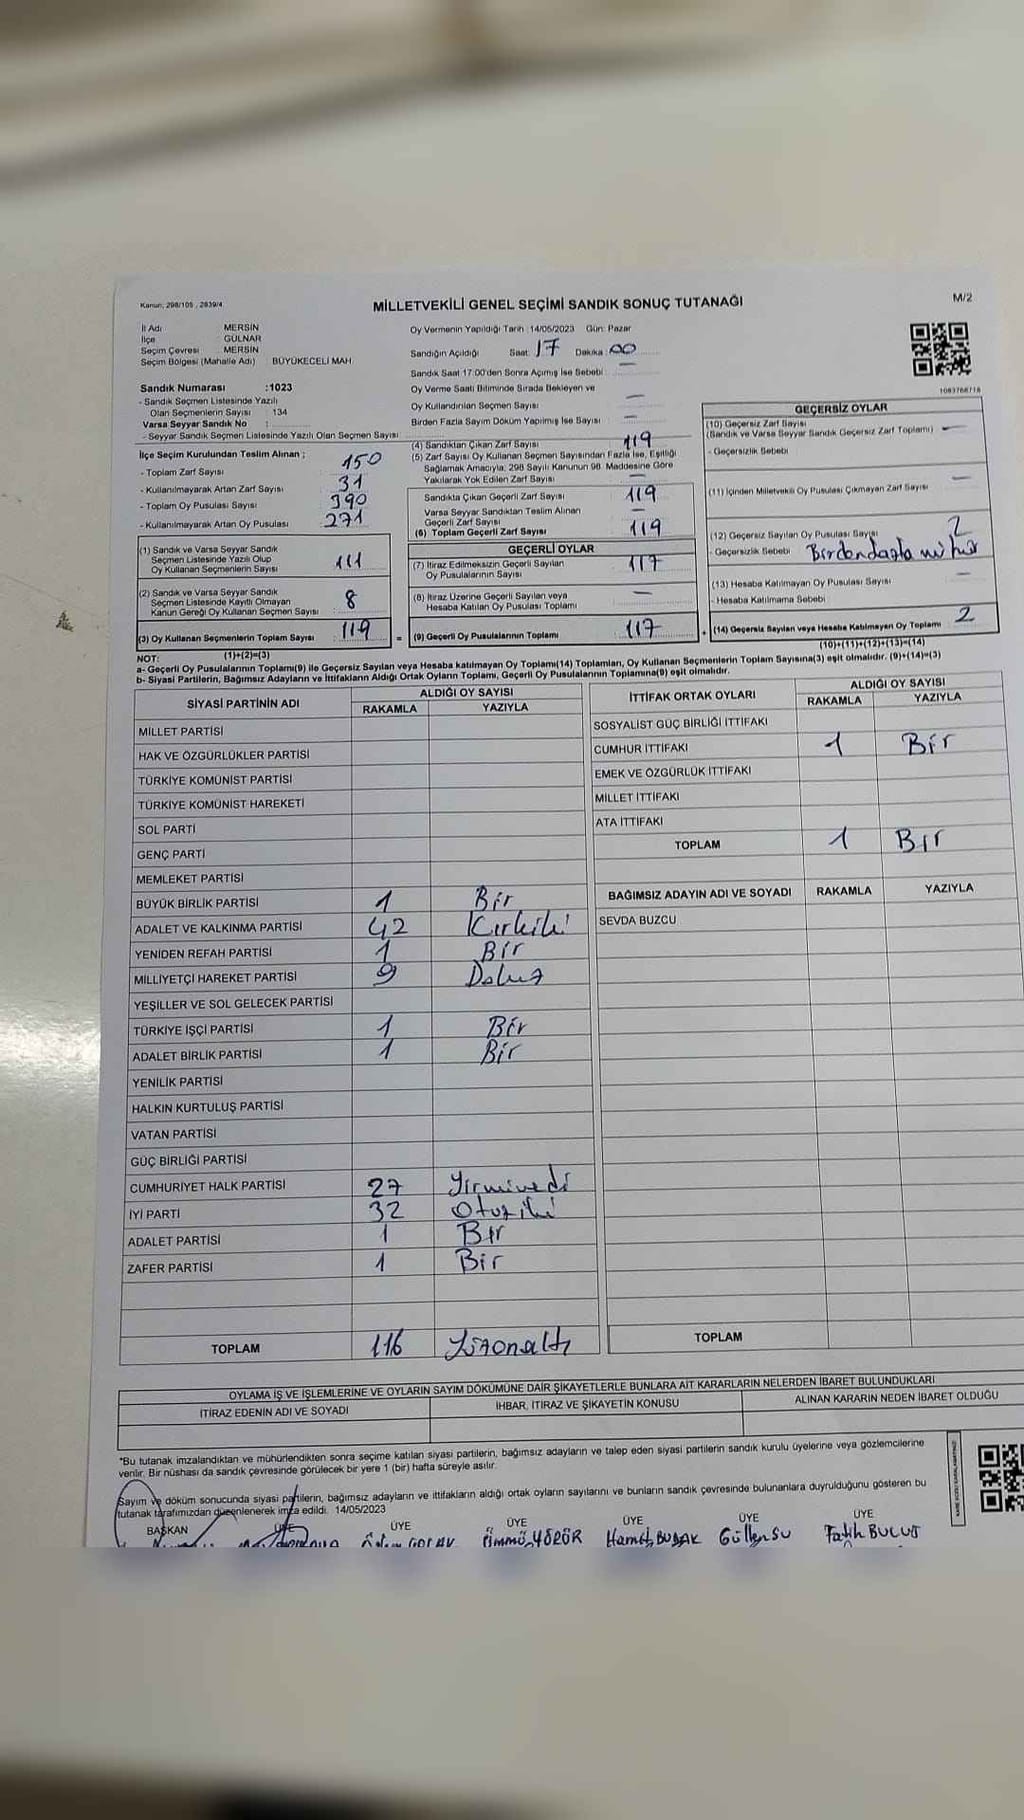 Kanun, 298/105 , 2839/4
MİLLETVEKİLİ GENEL SEÇİMİ SANDIK SONUÇ TUTANAĞI
M/2
İl Adı MERSİN
İlçe GÜLNAR
Seçim Çevresi MERSİN
Seçim Bölgesi (Mahalle Adı) BÜYÜKECELİ MAH.
Sandık Numarası :1023
- Sandık Seçmen Listesinde Yazılı
Olan Seçmenlerin Sayısı : 134
Varsa Seyyar Sandık No :
- Seyyar Sandık Seçmen Listesinde Yazılı Olan Seçmen Sayısı
İlçe Seçim Kurulundan Teslim Alınan ;
- Toplam Zarf Sayısı 150
- Kullanılmayarak Artan Zarf Sayısı 31
- Toplam Oy Pusulası Sayısı 390
- Kullanılmayarak Artan Oy Pusulası 271
(1) Sandık ve Varsa Seyyar Sandık
Seçmen Listesinde Yazılı Olup
Oy Kullanan Seçmenlerin Sayısı 111
(2) Sandık ve Varsa Seyyar Sandık
Seçmen Listesinde Kayıtlı Olmayan
Kanun Gereği Oy Kullanan Seçmen Sayısı 8
(3) Oy Kullanan Seçmenlerin Toplam Sayısı 119
(1)+(2)=(3)
Oy Vermenin Yapıldığı Tarih :14/05/2023 Gün: Pazar
Sandığın Açıldığı Saat: 17 Dakika :00
Sandık Saat 17:00'den Sonra Açımış İse Sebebi :
Oy Verme Saati Bitiminde Sırada Bekleyen ve
Oy Kullandırılan Seçmen Sayısı
Birden Fazla Sayım Döküm Yapılmış İse Sayısı :
(4) Sandıktan Çıkan Zarf Sayısı 119
(5) Zarf Sayısı Oy Kullanan Seçmen Sayısından Fazla İse, Eşitliği
Sağlamak Amacıyla, 298 Sayılı Kanunun 98. Maddesine Göre
Yakılarak Yok Edilen Zarf Sayısı
Sandıkta Çıkan Geçerli Zarf Sayısı 119
Varsa Seyyar Sandıktan Teslim Alınan
Geçerli Zarf Sayısı
(6) Toplam Geçerli Zarf Sayısı 119
GEÇERLİ OYLAR
(7) İtiraz Edilmeksizin Geçerli Sayılan
Oy Pusulalarının Sayısı 117
(8) İtiraz Üzerine Geçerli Sayılan veya
Hesaba Katılan Oy Pusulası Toplamı
= (9) Geçerli Oy Pusulalarının Toplamı 117
1083768718
GEÇERSİZ OYLAR
(10) Geçersiz Zarf Sayısı
(Sandık ve Varsa Seyyar Sandık Geçersiz Zarf Toplamı)
- Geçersizlik Sebebi
(11) İçinden Milletvekili Oy Pusulası Çıkmayan Zarf Sayısı
(12) Geçersiz Sayılan Oy Pusulası Sayısı 2
- Geçersizlik Sebebi Birdendazla mühür
(13) Hesaba Katılmayan Oy Pusulası Sayısı
- Hesaba Katılmama Sebebi
+ (14) Geçersiz Sayılan veya Hesaba Katılmayan Oy Toplamı 2
(10)+(11)+(12)+(13)=(14)
NOT:
a- Geçerli Oy Pusulalarının Toplamı(9) ile Geçersiz Sayılan veya Hesaba katılmayan Oy Toplamı(14) Toplamları, Oy Kullanan Seçmenlerin Toplam Sayısına(3) eşit olmalıdır. (9)+(14)=(3)
b- Siyasi Partilerin, Bağımsız Adayların ve İttifakların Aldığı Ortak Oyların Toplamı, Geçerli Oy Pusulalarının Toplamına(9) eşit olmalıdır.
SİYASİ PARTİNİN ADI ALDIĞI OY SAYISI
RAKAMLA YAZIYLA
MİLLET PARTİSİ
HAK VE ÖZGÜRLÜKLER PARTİSİ
TÜRKİYE KOMÜNİST PARTİSİ
TÜRKİYE KOMÜNİST HAREKETİ
SOL PARTİ
GENÇ PARTİ
MEMLEKET PARTİSİ
BÜYÜK BİRLİK PARTİSİ 1 Bir
ADALET VE KALKINMA PARTİSİ 42 Kırkiki
YENİDEN REFAH PARTİSİ 1 Bir
MİLLİYETÇİ HAREKET PARTİSİ 9 Dokuz
YEŞİLLER VE SOL GELECEK PARTİSİ
TÜRKİYE İŞÇİ PARTİSİ 1 Bir
ADALET BİRLİK PARTİSİ 1 Bir
YENİLİK PARTİSİ
HALKIN KURTULUŞ PARTİSİ
VATAN PARTİSİ
GÜÇ BİRLİĞİ PARTİSİ
CUMHURİYET HALK PARTİSİ 27 Yirmiyedi
İYİ PARTİ 32 Otuziki
ADALET PARTİSİ 1 Bir
ZAFER PARTİSİ 1 Bir
TOPLAM 116 Yüzonaltı
İTTİFAK ORTAK OYLARI ALDIĞI OY SAYISI
RAKAMLA YAZIYLA
SOSYALİST GÜÇ BİRLİĞİ İTTİFAKI
CUMHUR İTTİFAKI 1 Bir
EMEK VE ÖZGÜRLÜK İTTİFAKI
MİLLET İTTİFAKI
ATA İTTİFAKI
TOPLAM 1 Bir
BAĞIMSIZ ADAYIN ADI VE SOYADI RAKAMLA YAZIYLA
SEVDA BUZCU
TOPLAM
OYLAMA İŞ VE İŞLEMLERİNE VE OYLARIN SAYIM DÖKÜMÜNE DAİR ŞİKAYETLERLE BUNLARA AİT KARARLARIN NELERDEN İBARET BULUNDUKLARI
İTİRAZ EDENİN ADI VE SOYADI İHBAR, İTİRAZ VE ŞİKAYETİN KONUSU ALINAN KARARIN NEDEN İBARET OLDUĞU
*Bu tutanak imzalandıktan ve mühürlendikten sonra seçime katılan siyasi partilerin, bağımsız adayların ve talep eden siyasi partilerin sandık kurulu üyelerine veya gözlemcilerine
verilir. Bir nüshası da sandık çevresinde görülecek bir yere 1 (bir) hafta süreyle asılır.
Sayım ve döküm sonucunda siyasi partilerin, bağımsız adayların ve ittifakların aldığı ortak oyların sayılarını ve bunların sandık çevresinde bulunanlara duyrulduğunu gösteren bu
tutanak tarafımızdan düzenlenerek imza edildi. 14/05/2023
BAŞKAN ÜYE ÜYE ÜYE ÜYE ÜYE ÜYE
Ümmü YÖRÜR Hamit BUDAK Güller SU Fatih BULUT